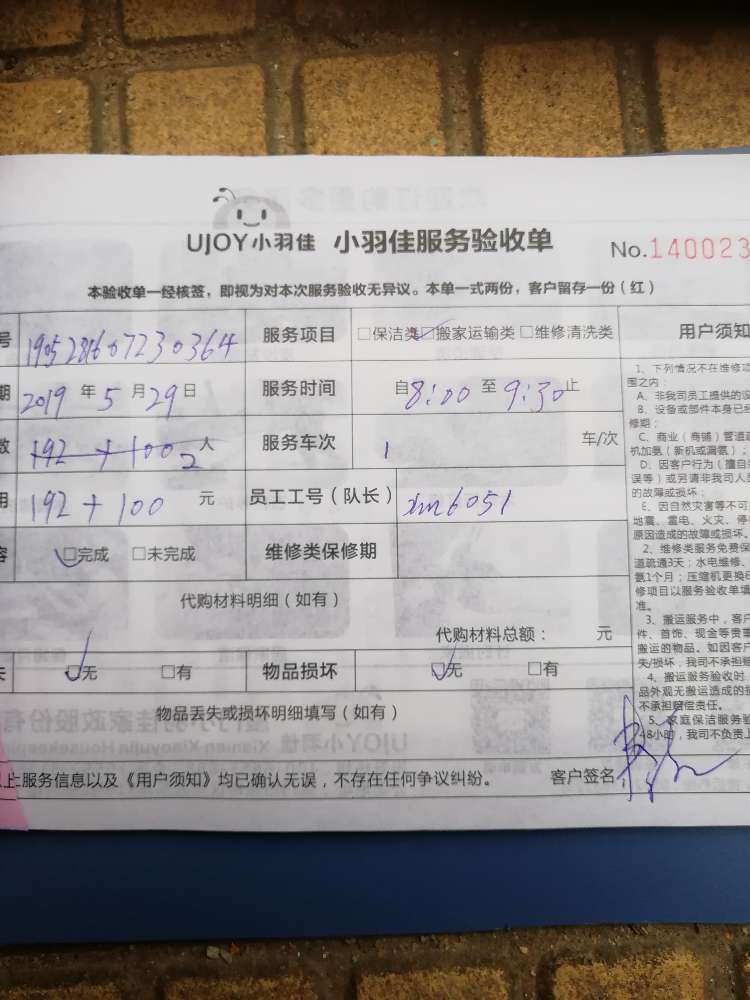 UJOY小羽佳 小羽佳服务验收单
No.140023
本验收单一经核签，即视为对本次服务验收无异议。本单一式两份，客户留存一份（红）
号 1905281607230364 服务项目 □保洁类 ☑搬家运输类 □维修清洗类 用户须知
期 2019 年 5 月 29 日 服务时间 自8:00 至 9:30止
数 192+100 2 人 服务车次 1 车/次
用 192+100 元 员工工号（队长） xm6051
容 ☑完成 □未完成 维修类保修期
代购材料明细（如有）
代购材料总额： 元
失 ☑无 □有 物品损坏 ☑无 □有
物品丢失或损坏明细填写（如有）
以上服务信息以及《用户须知》均已确认无误，不存在任何争议纠纷。 客户签名
1、下列情况不在维修项
围之内：
A、非我司员工提供的设
B、设备或部件本身已经
修期；
C、商业（商铺）管道疏
机加氨（新机或漏氨）；
D、因客户行为（擅自
误等）或另请非我司人员
的故障或损坏；
E、因自然灾害等不可
地震、雷电、火灾、停
原因造成的故障或损坏。
2、维修类服务免费保
道疏通3天；水电维修、
氨1个月；压缩机更换
修项目以服务验收单填
准。
3、搬运服务中，客户
件、首饰、现金等贵重
搬运的物品。如因客户
失/损坏，我司不承担赔
4、搬运服务验收时
品外观无搬运造成的损
不承担赔偿责任。
5、家庭保洁服务验
48小时，我司不负责上